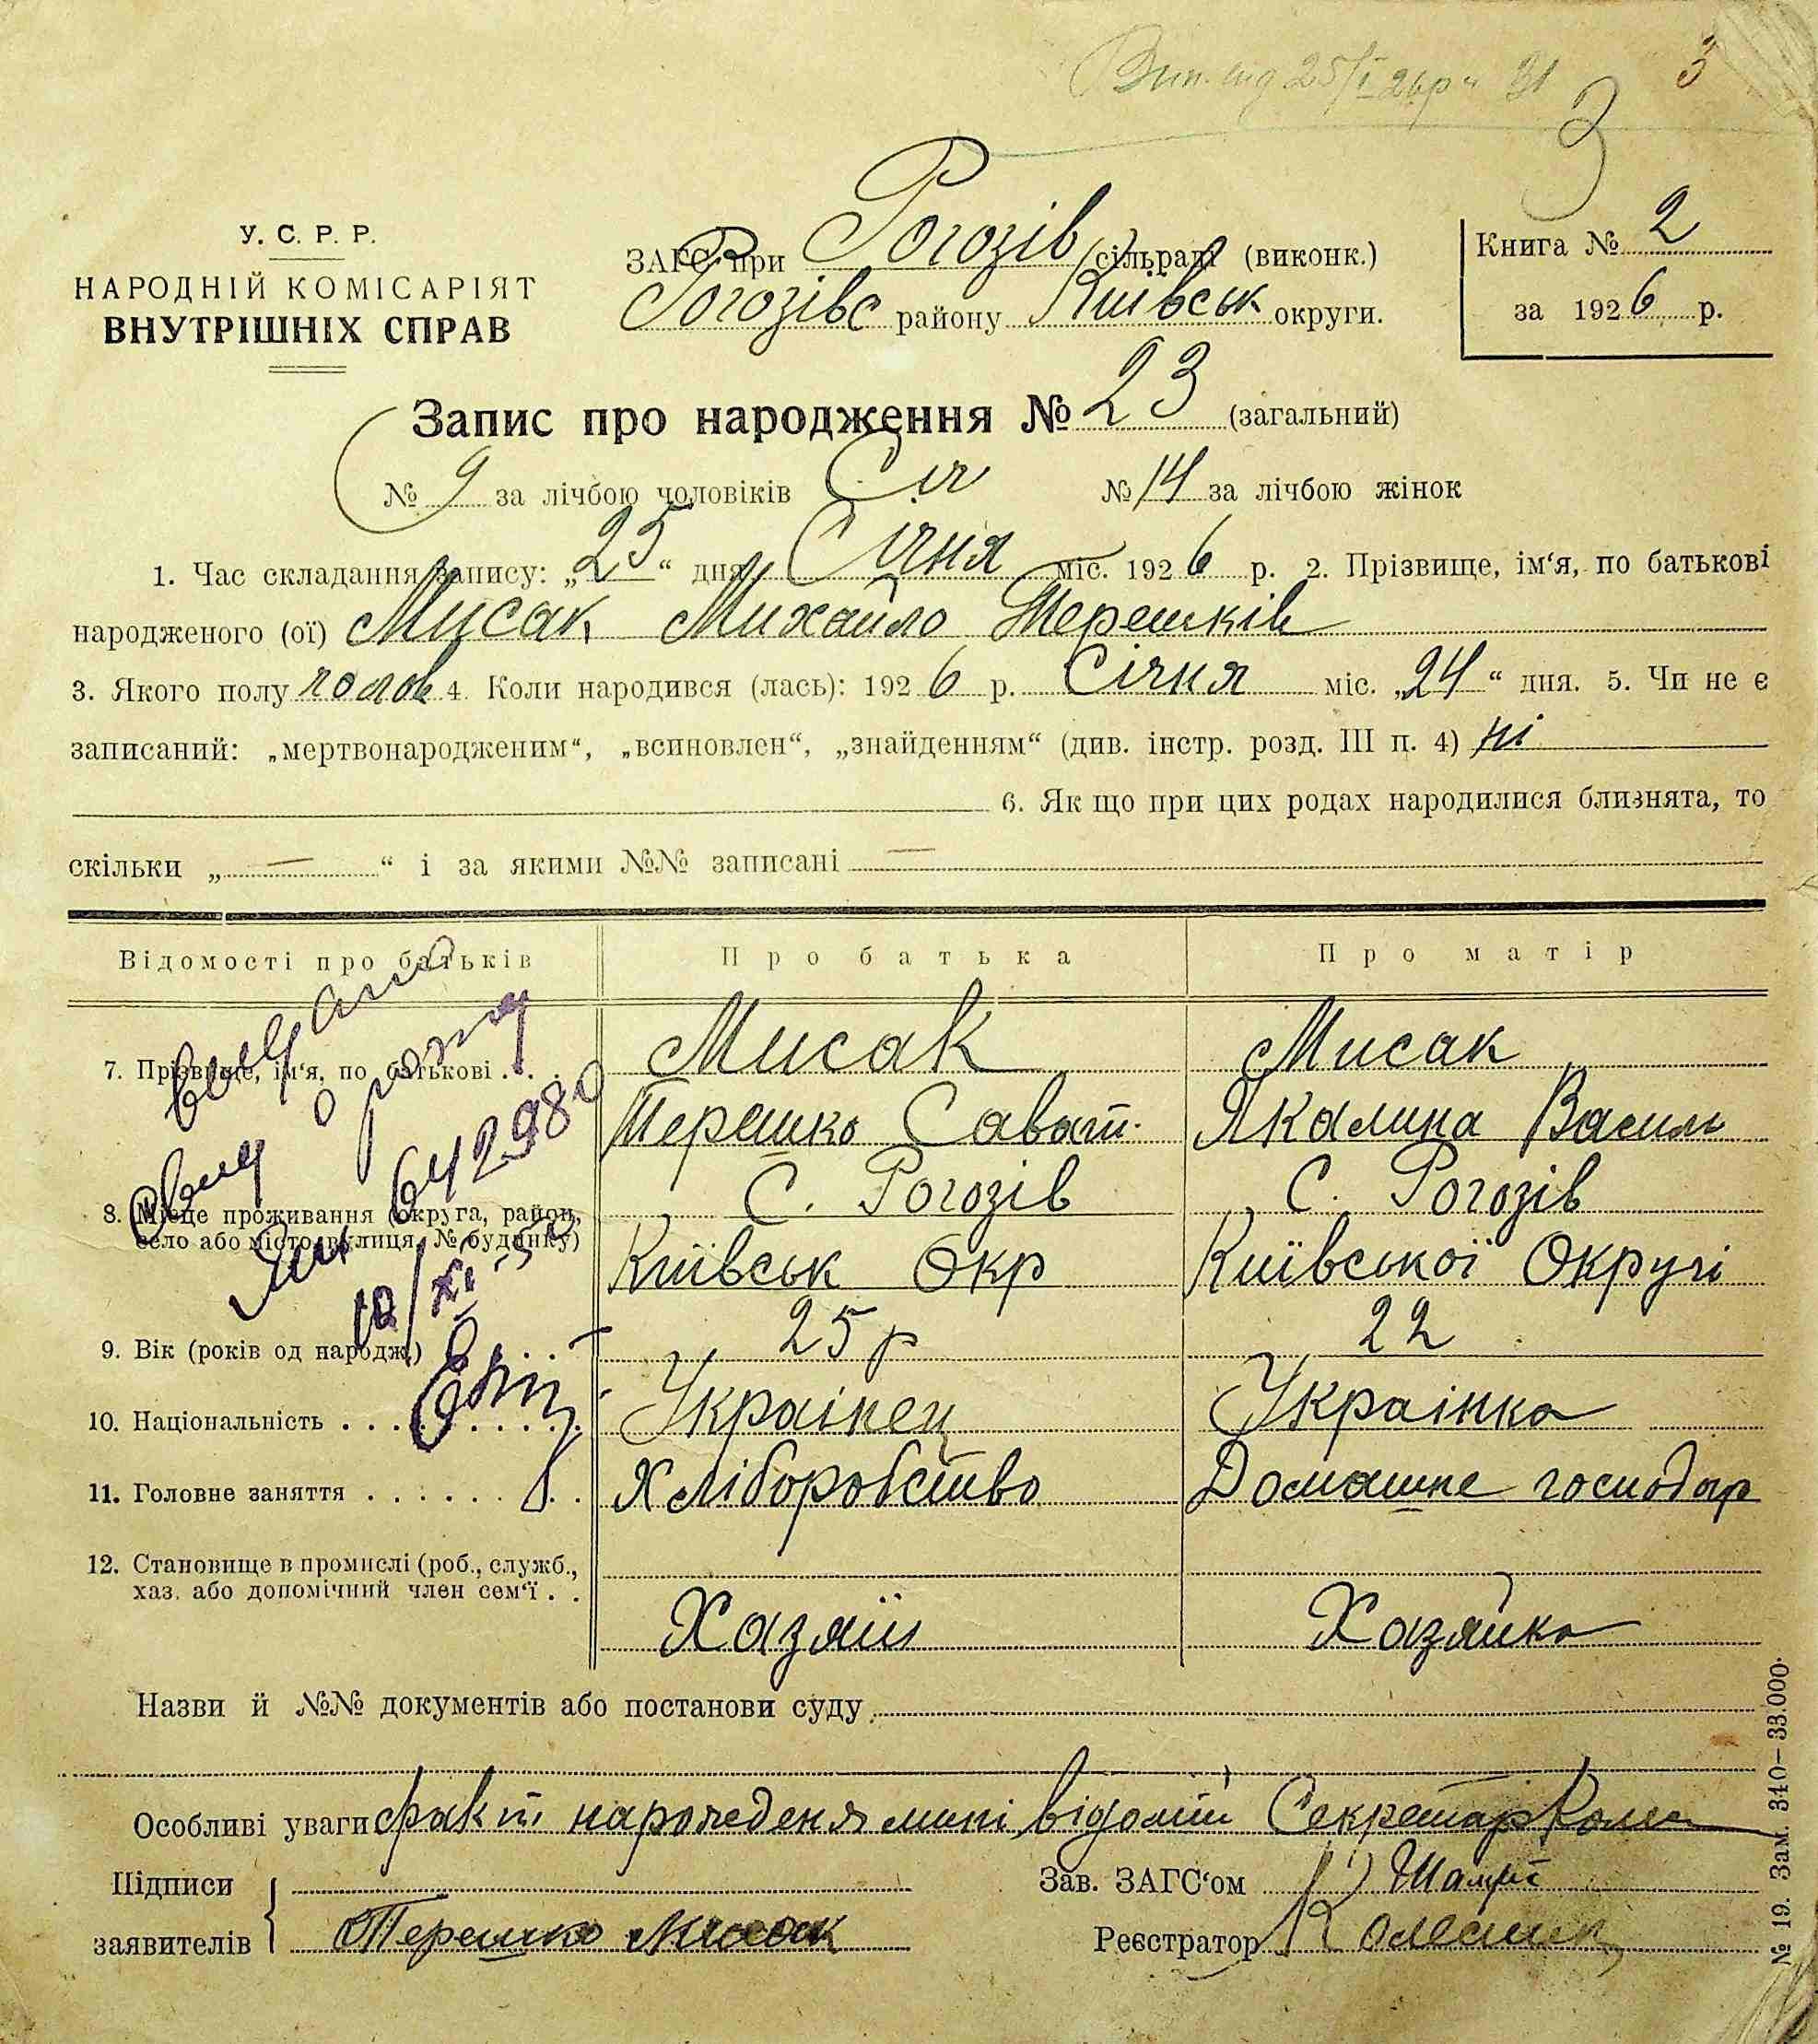 3
3
У. С. Р. Р.
НАРОДНІЙ КОМІСАРІЯТ
ВНУТРІШНІХ СПРАВ
ЗАГС при Рогозів сільраді (виконк.)
Рогозівс району Київськ округи.
Книга № 2
за 1926 р.
Запис про народження № 23 (загальний)
№ 9 за лічбою чоловіків Січ № 14 за лічбою жінок
1. Час складання запису: „25“ дня Січня міс. 1926 р. 2. Прізвище, ім‘я, по батькові
народженого (ої) Мисак Михайло Терешків
3. Якого полу чолов 4. Коли народився (лась): 1926 р. Січня міс. „24“ дня. 5. Чи не є
записаний: „мертвонародженим“, „всиновлен“, „знайденням“ (див. інстр. розд. III п. 4) ні
6. Як що при цих родах народилися близнята, то
скільки „ — “ і за якими №№ записані —
Відомості про батьків Про батька Про матір
7. Прізвище, ім‘я, по батькові . . . Мисак Мисак
Терешко Сават. Якалина Васил
8. Місце проживання (округа, район, С. Рогозів С. Рогозів
село або місто, вулиця, № будинку) Київськ Окр Київської Округі
9. Вік (років од народж.) . . . 25 р 22
10. Національність . . . . . . . . Українец Українка
11. Головне заняття . . . . . . . . Хліборобство Домашнє господар
12. Становище в промислі (роб., служб.,
хаз. або допомічний член сем‘ї . . Хазяїн Хазяйка
видано
о рожд
642980
Назви й №№ документів або постанови суду
Особливі уваги факт народеденя мині відомий Секретар
Підписи Зав. ЗАГС‘ом
заявителів Терешко Мисак Реєстратор Колесник
№ 19. Зам. 340–33.000.